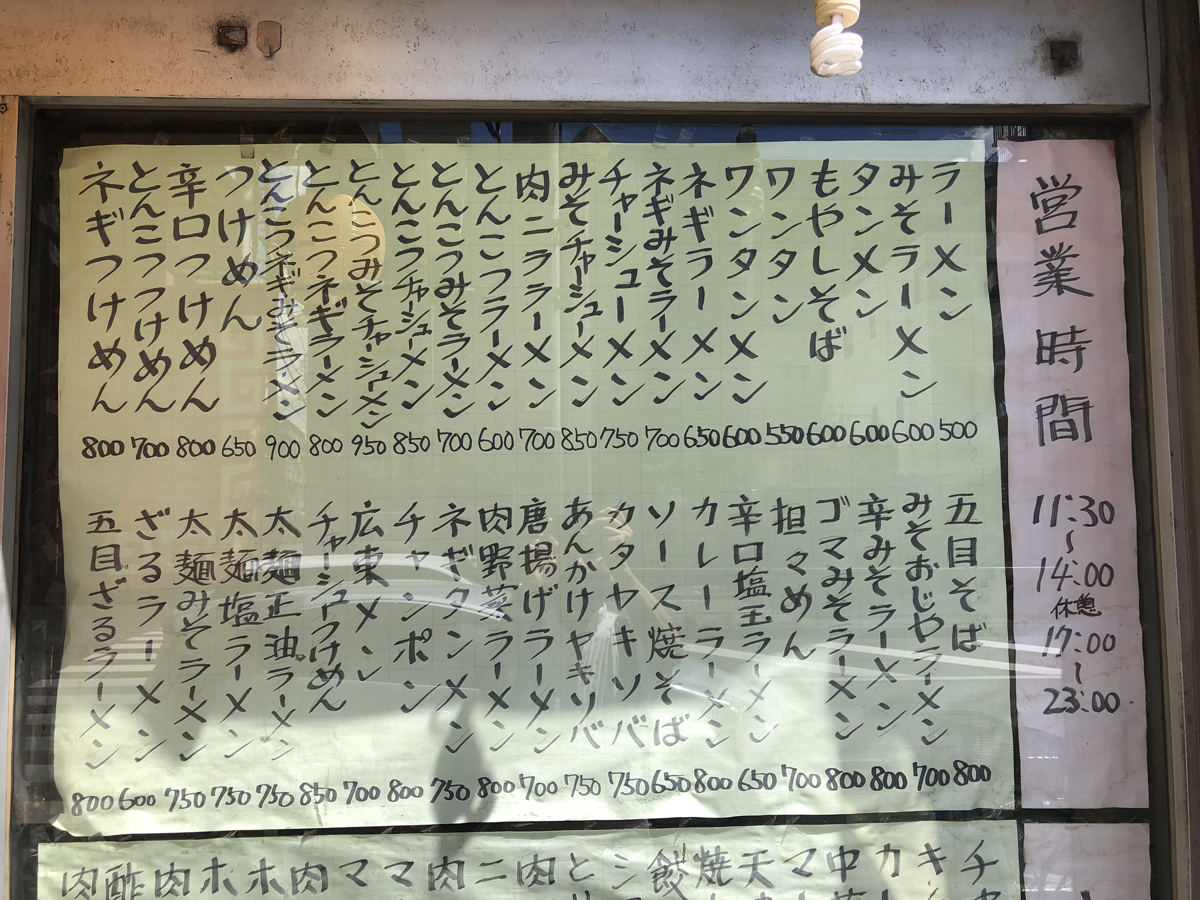 営業時間
11:30
〜
14:00
休憩
17:00
〜
23:00
ラーメン 500
みそラーメン 600
タンメン 600
もやしそば 600
ワンタン 550
ワンタンメン 600
ネギラーメン 650
ネギみそラーメン 700
チャーシューメン 750
みそチャーシューメン 850
肉ニララーメン 700
とんこつラーメン 600
とんこつみそラーメン 700
とんこつチャーシューメン 850
とんこつみそチャーシューメン 950
とんこつネギラーメン 800
とんこつネギみそラーメン 900
つけめん 650
辛口つけめん 800
とんこつつけめん 700
ネギつけめん 800
五目そば 800
みそおじやラーメン 700
辛みそラーメン 800
ゴマみそラーメン 800
担々めん 700
辛口塩玉ラーメン 650
カレーラーメン 800
ソース焼そば 650
カタヤキソバ 750
あんかけヤキソバ 750
唐揚げラーメン 700
肉野菜ラーメン 800
ネギタンメン 750
チャンポン 800
広東メン 700
チャーシュウつけめん 850
太麺正油ラーメン 750
太麺塩ラーメン 750
太麺みそラーメン 750
ざるラーメン 600
五目ざるラーメン 800